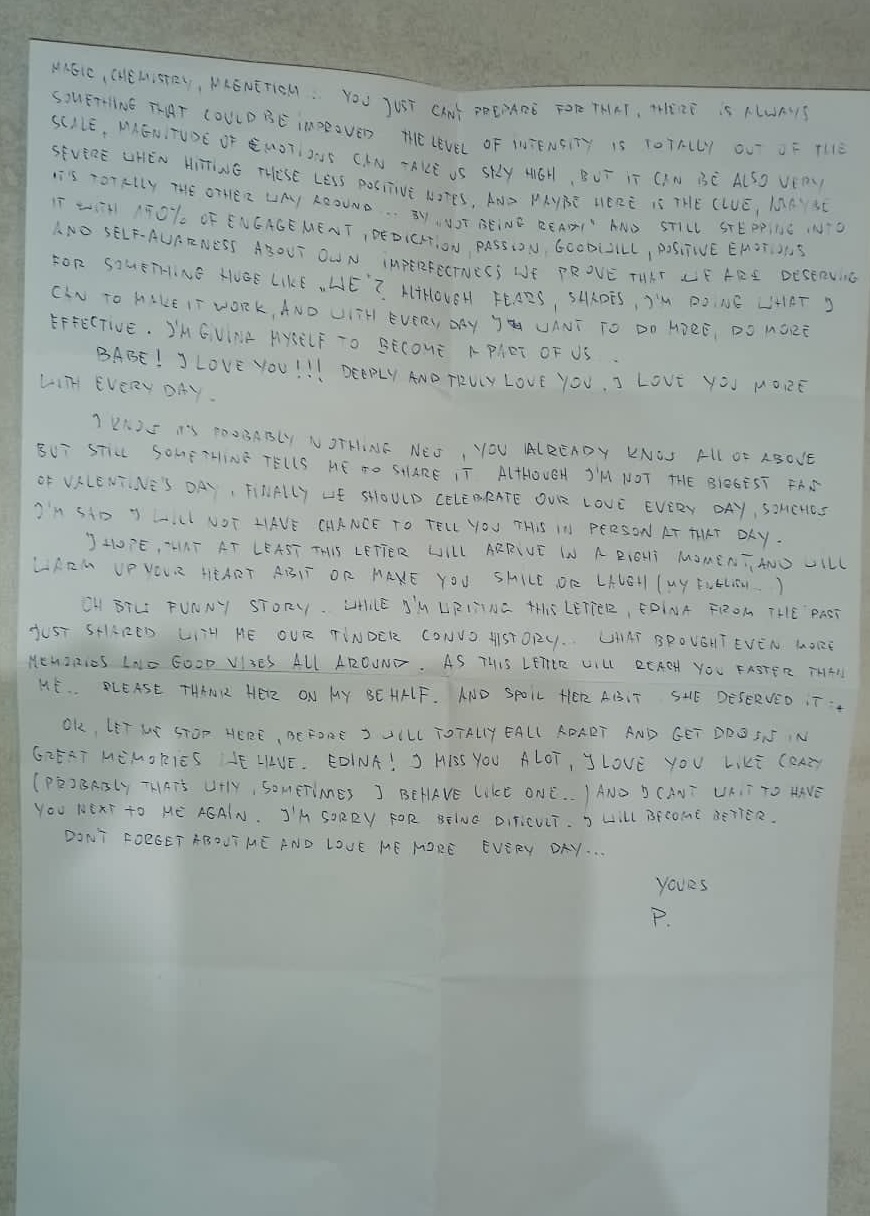 MAGIC, CHEMISTRY, MAGNETISM.. YOU JUST CAN'T PREPARE FOR THAT, THERE IS ALWAYS
SOMETHING THAT COULD BE IMPROVED THE LEVEL OF INTENSITY IS TOTALLY OUT OF THE
SCALE, MAGNITUDE OF EMOTIONS CAN TAKE US SKY HIGH, BUT IT CAN BE ALSO VERY
SEVERE WHEN HITTING THESE LESS POSITIVE NOTES, AND MAYBE HERE IS THE CLUE, MAYBE
IT'S TOTALLY THE OTHER WAY AROUND... BY „NOT BEING READY" AND STILL STEPPING INTO
IT WITH 150% OF ENGAGEMENT, DEDICATION, PASSION, GOODWILL, POSITIVE EMOTIONS
AND SELF-AWARNESS ABOUT OWN IMPERFECTNESS WE PROVE THAT WE ARE DESERVING
FOR SOMETHING HUGE LIKE „WE"? ALTHOUGH FEARS, SHADES, I'M DOING WHAT I
CAN TO MAKE IT WORK, AND WITH EVERY DAY I WANT TO DO MORE, DO MORE
EFFECTIVE. I'M GIVING MYSELF TO BECOME A PART OF US.
BABE! I LOVE YOU!!! DEEPLY AND TRULY LOVE YOU, I LOVE YOU MORE
WITH EVERY DAY.
I KNOW IT'S PROBABLY NOTHING NEW, YOU ALREADY KNOW ALL OF ABOVE
BUT STILL SOMETHING TELLS ME TO SHARE IT. ALTHOUGH I'M NOT THE BIGGEST FAN
OF VALENTINE'S DAY, FINALLY WE SHOULD CELEBRATE OUR LOVE EVERY DAY, SOMEHOW
I'M SAD I WILL NOT HAVE CHANCE TO TELL YOU THIS IN PERSON AT THAT DAY.
I HOPE, THAT AT LEAST THIS LETTER WILL ARRIVE IN A RIGHT MOMENT, AND WILL
WARM UP YOUR HEART ABIT OR MAKE YOU SMILE OR LAUGH (MY ENGLISH...)
OH BTW FUNNY STORY.. WHILE I'M WRITING THIS LETTER, EDINA FROM THE PAST
JUST SHARED WITH ME OUR TINDER CONVO HISTORY.. WHAT BROUGHT EVEN MORE
MEMORIES AND GOOD VIBES ALL AROUND. AS THIS LETTER WILL REACH YOU FASTER THAN
ME.. PLEASE THANK HER ON MY BEHALF. AND SPOIL HER ABIT SHE DESERVED IT :*
OK, LET ME STOP HERE, BEFORE I WILL TOTALLY FALL APART AND GET DROWN IN
GREAT MEMORIES WE HAVE. EDINA! I MISS YOU A LOT, I LOVE YOU LIKE CRAZY
(PROBABLY THAT'S WHY, SOMETIMES I BEHAVE LIKE ONE..) AND I CAN'T WAIT TO HAVE
YOU NEXT TO ME AGAIN. I'M SORRY FOR BEING DIFICULT. I WILL BECOME BETTER.
DON'T FORGET ABOUT ME AND LOVE ME MORE EVERY DAY...
YOURS
P.